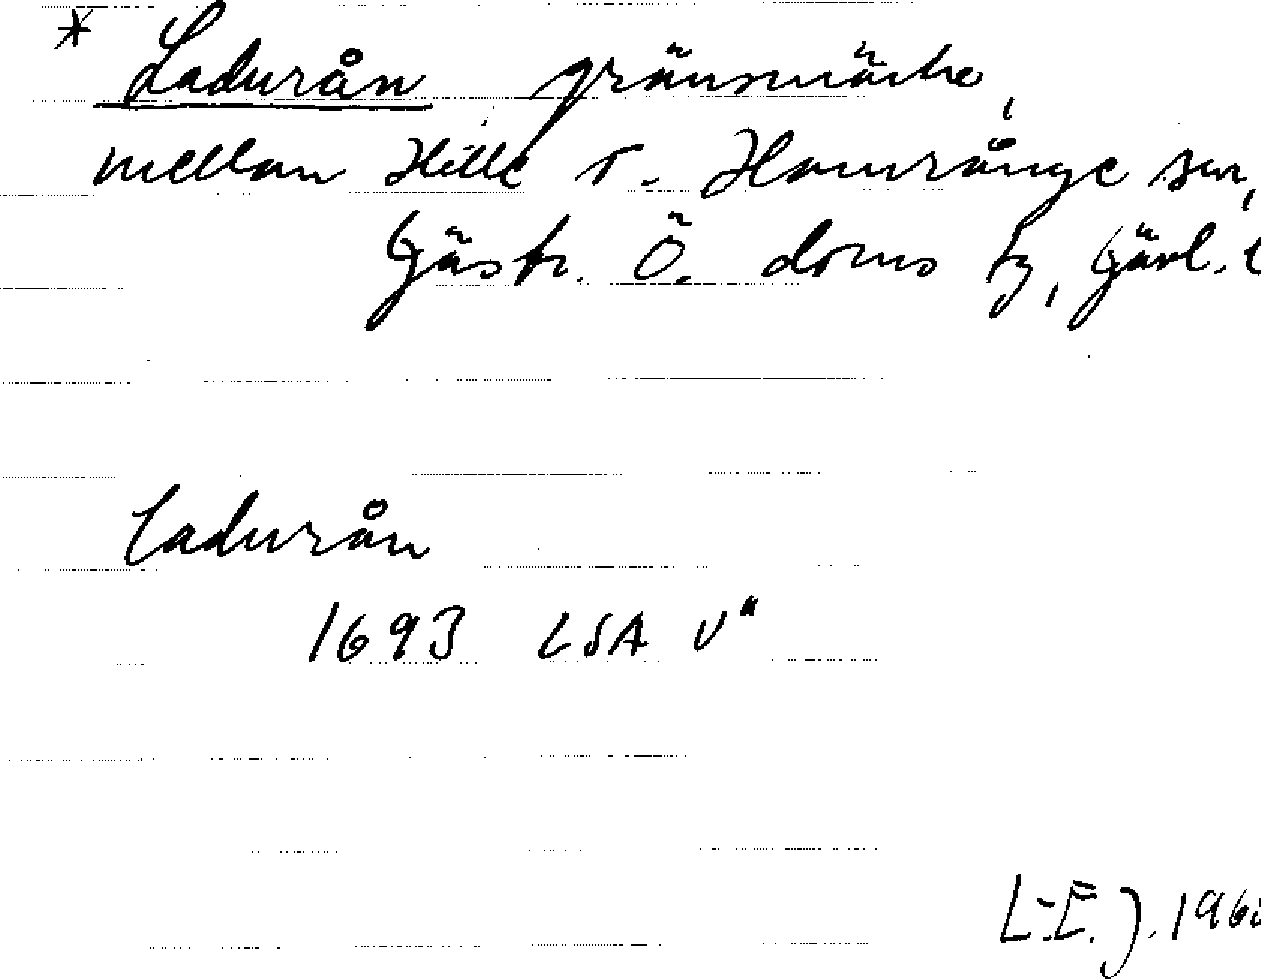 * Ladurån gränsmärke,
mellan Hille o. Hamrånge snr,
Gästr. Ö. doms tg, Gävl. l
Ladurån
1693 LSA V"
L-E. J. 196